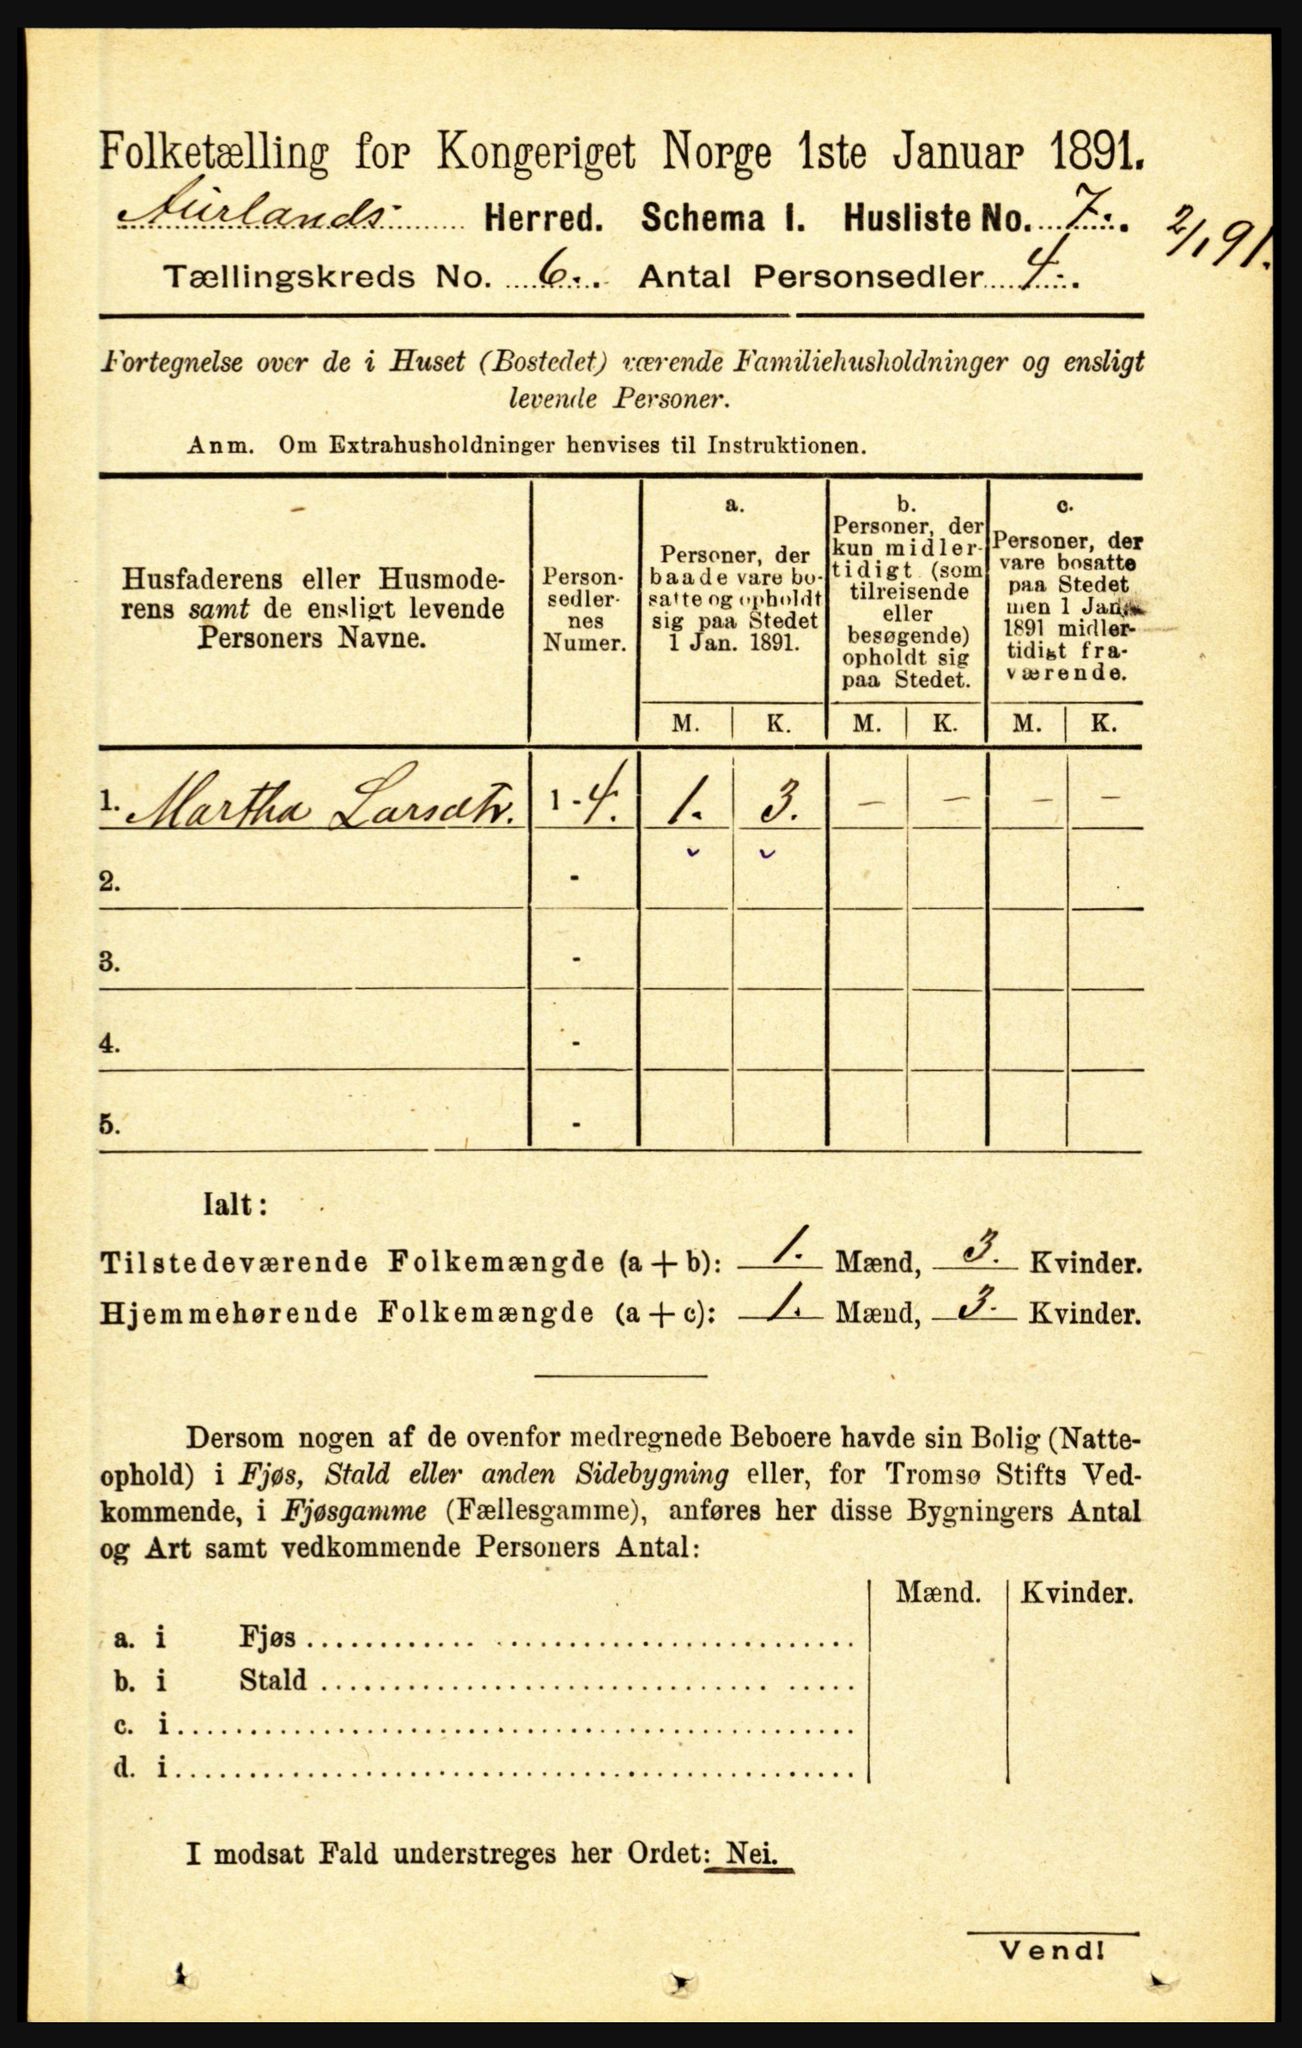 Folketælling for Kongeriget Norge 1ste Januar 1891.
Aurlands Herred. Schema I. Husliste No. 7.
2/1 91.
Tællingskreds No. 6. Antal Personsedler 4.
Fortegnelse over de i Huset (Bostedet) værende Familiehusholdninger og ensligt
levende Personer.
Anm. Om Extrahusholdninger henvises til Instruktionen.
Husfaderens eller Husmode-
rens samt de ensligt levende
Personers Navne.
Person-
sedler-
nes
Numer.
a.
Personer, der
baade vare bo-
satte og opholdt
sig paa Stedet
1 Jan. 1891.
b.
Personer, der
kun midler-
tidigt (som
tilreisende
eller
besøgende)
opholdt sig
paa Stedet.
c.
Personer, der
vare bosatte
paa Stedet
men 1 Jan.
1891 midler-
tidigt fra-
værende.
M. K. M. K. M. K.
1. Martha Larsdtr. 1 - 4. 1. 3. — — — —
2. -
3. -
4. -
5. -
Ialt:
Tilstedeværende Folkemængde (a + b): 1. Mænd, 3. Kvinder.
Hjemmehørende Folkemængde (a + c): 1. Mænd, 3. Kvinder.
Dersom nogen af de ovenfor medregnede Beboere havde sin Bolig (Natte-
ophold) i Fjøs, Stald eller anden Sidebygning eller, for Tromsø Stifts Ved-
kommende, i Fjøsgamme (Fællesgamme), anføres her disse Bygningers Antal
og Art samt vedkommende Personers Antal:
Mænd. Kvinder.
a. i Fjøs
b. i Stald
c. i
d. i
I modsat Fald understreges her Ordet: Nei.
Vend!